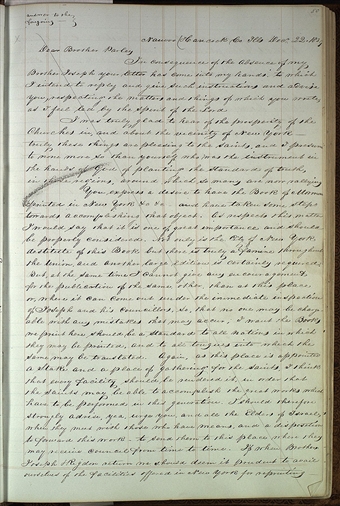 answer to the
foregoing
Nauvoo Hancock Co Ills Dec. 22. 1839
Dear Brother Parley
In consequence of the absence of my
Brother Joseph your letter has come into my hands, to which
I intend to reply and give such instructions and advise
you, respecting the matters and things of which you wrote,
as I feel led by the Spirit of the Lord.
I was truly glad to hear of the prosperity of the
Churches in, and about the vicinity of New York—
truly these things are pleasing to the Saints, and I presume
to none more so than yourself who was the instrument in
the hands of God, of planting the Standards of truth,
in those regions, around which so many are now rallying
You express a desire to have the Book of Mormon
printed in New York &c &c and have taken some steps
towards accomplishing that object. As respects this matter
I would say that it is one of great importance and should
be properly considered. Not only is the City of New York
destitute of this Book, but there is truly a famine throughout
the Union and another large edition is certainly required
But at the same time I cannot give any encouragement,
for the publication of the same, other, than at this place
or, where it can come out under the immediate inspection
of Joseph and his Councillors, so, that no one may be charge-
able with any mistakes that may occur. I want the Books
we print here should be a Standard to all Nations in which
they may be printed, and to all tongues into which the
same may be translated. Again, as this place is appointed
a Stake and a place of gathering for the Saints, I think
that every facility should be rendered it, in order that
the Saints may be able to accomplish the great works which
have to be performed in this generation. I should therefore
strongly advise, yea, urge you, and all the Elders of Israel,
when they meet with those who have means, and a disposition
to forward this work to send them to this place where they
may receive council from time to time. If when Brothers
Joseph & Rigdon return we should deem it prudent to avail
ourselves of the facilities offered in New York for reprinting